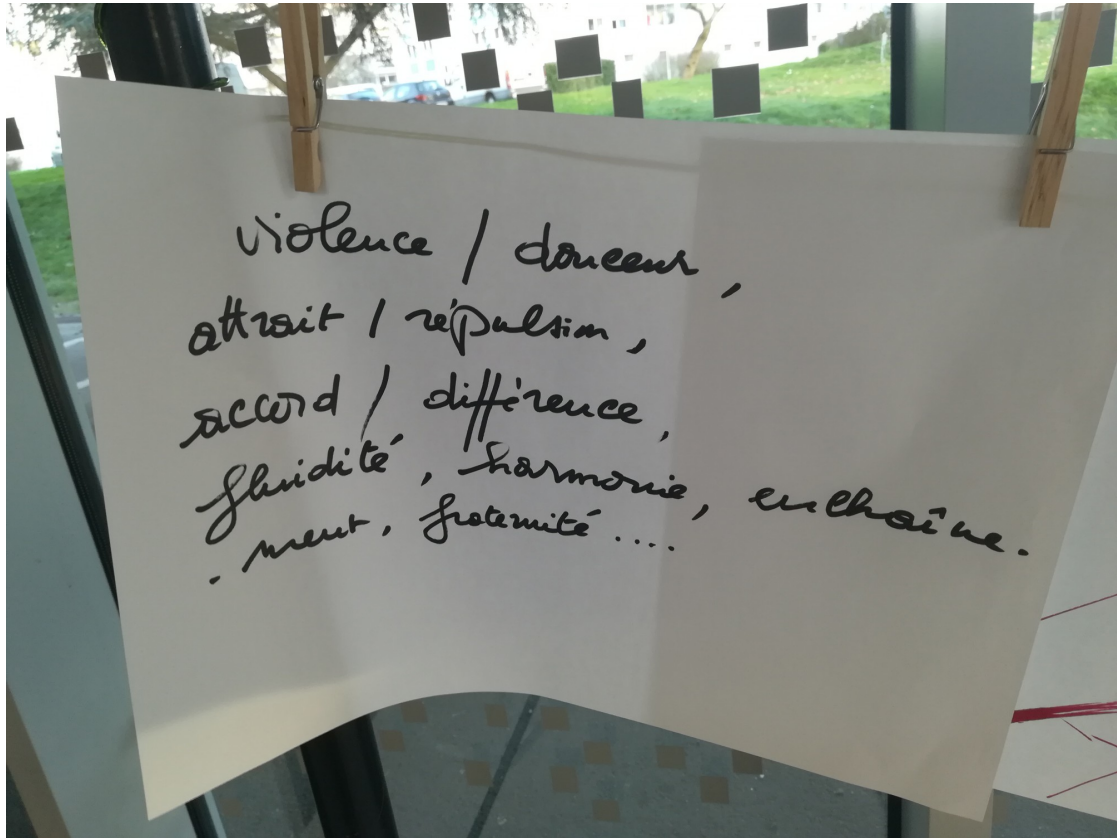 violence / douceur,
attrait / répulsion,
accord / différence,
fluidité, harmonie, enchaîne.
. ment, fraternité ....